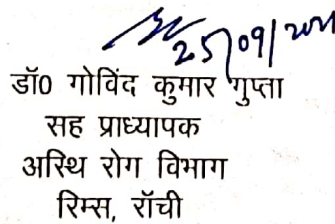 25/09/2021
डॉ0 गोविंद कुमार गुप्ता
सह प्राध्यापक
अस्थि रोग विभाग
रिम्स, राँची